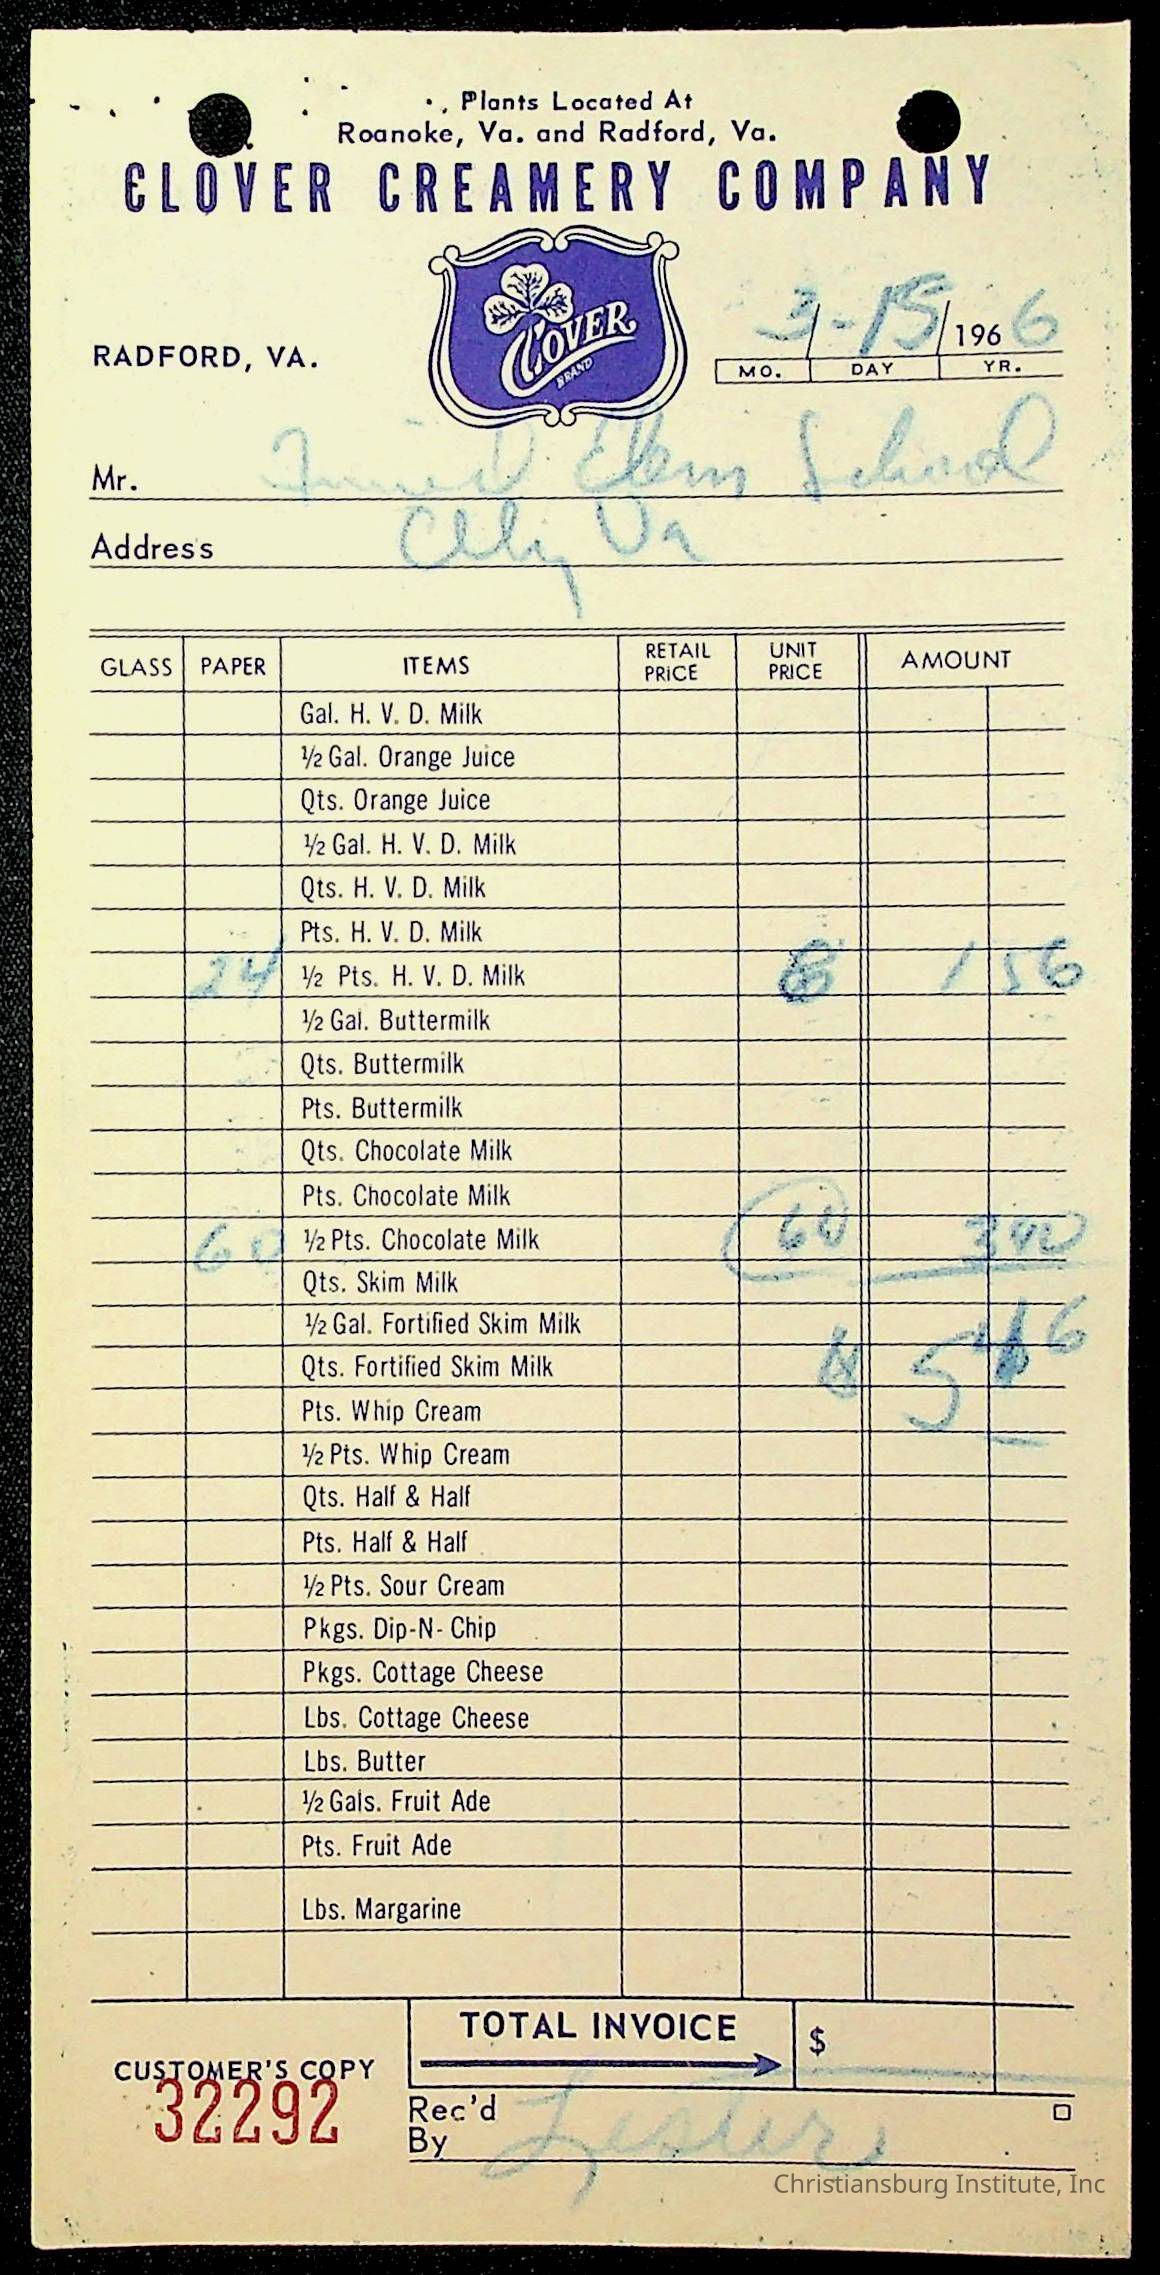 Plants Located At
Roanoke, Va. and Radford, Va.
CLOVER CREAMERY COMPANY
CLOVER
BRAND
RADFORD, VA.
3-15 1966
MO. DAY YR.
Mr. Elem School
Address Va
GLASS PAPER ITEMS RETAIL PRICE UNIT PRICE AMOUNT
Gal. H. V. D. Milk
½ Gal. Orange Juice
Qts. Orange Juice
½ Gal. H. V. D. Milk
Qts. H. V. D. Milk
Pts. H. V. D. Milk
24 ½ Pts. H. V. D. Milk 1 56
½ Gal. Buttermilk
Qts. Buttermilk
Pts. Buttermilk
Qts. Chocolate Milk
Pts. Chocolate Milk
60 ½ Pts. Chocolate Milk 60
Qts. Skim Milk
½ Gal. Fortified Skim Milk
Qts. Fortified Skim Milk
Pts. Whip Cream
½ Pts. Whip Cream
Qts. Half & Half
Pts. Half & Half
½ Pts. Sour Cream
Pkgs. Dip-N-Chip
Pkgs. Cottage Cheese
Lbs. Cottage Cheese
Lbs. Butter
½ Gals. Fruit Ade
Pts. Fruit Ade
Lbs. Margarine
TOTAL INVOICE $
CUSTOMER'S COPY
32292
Rec'd
By
Christiansburg Institute, Inc